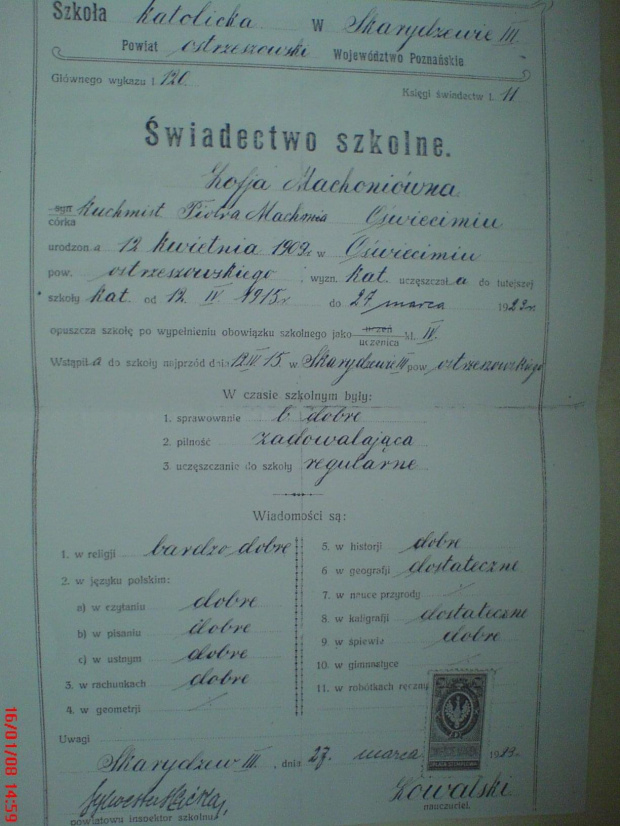 Szkoła katolicka w Skarydzewie III
Powiat ostrzeszowski Województwo Poznańskie
Głównego wykazu l. 120. Księgi świadectw l. 11
Świadectwo szkolne.
Zofja Machoniówna
syn
córka kuchmist Piotra Oświecimiu
urodzona 12 kwietnia 1909r. w Oświecimiu
pow. ostrzeszowskiego, wyzn. kat. uczęszczała do tutejszej
szkoły kat. od 12. IV 1915r do 27 marca 1923r.
opuszcza szkołę po wypełnieniu obowiązku szkolnego jako uczeń
uczenica kl. IV.
Wstąpiła do szkoły najprzód dnia 12 IV 15. w Skarydzewie III pow. ostrzeszowskiego
W czasie szkolnym były:
1. sprawowanie b dobre
2. pilność zadowalająca
3. uczęszczanie do szkoły regularne
Wiadomości są:
1. w religji bardzo dobre
2. w języku polskim:
a) w czytaniu dobre
b) w pisaniu dobre
c) w ustnym dobre
3. w rachunkach dobre
4. w geometrji
5. w historji dobre
6 w geografji dostateczne
7. w nauce przyrody
8. w kaligrafji dostateczne
9. w śpiewie dobre
10. w gimnastyce
11. w robótkach ręczny
Uwagi
Skarydzew III., dnia 27. marca 1923r.
Kowalski
nauczyciel.
powiatowy inspektor szkolny
16/01/08 14:59